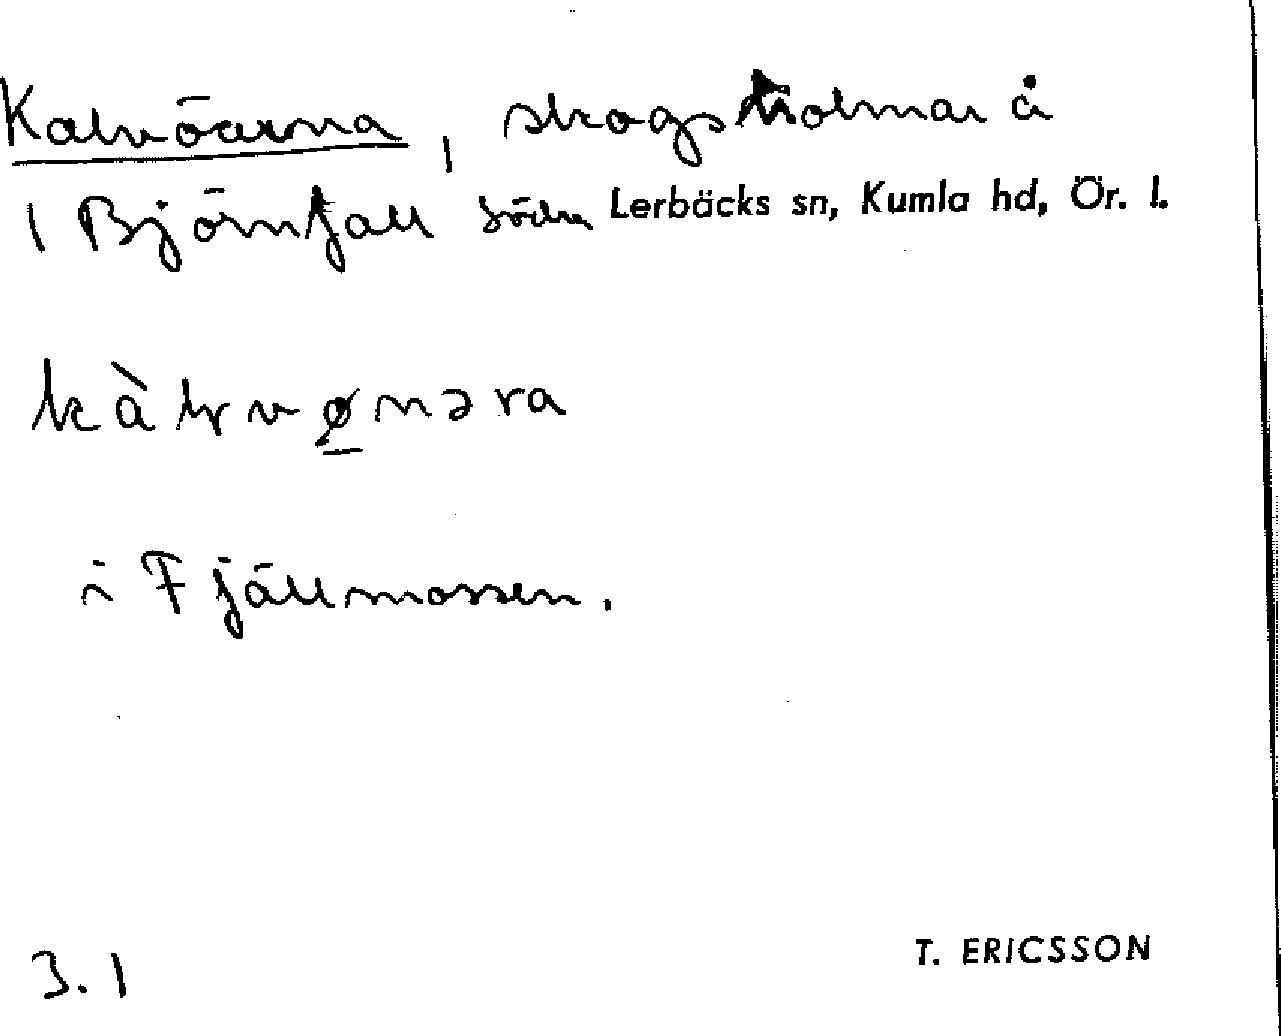 Kalvöarna, skogsholmar å
1 Björnfall södra Lerbäcks sn, Kumla hd, Ör. l.
i Fjällmossen.
3.1
T. ERICSSON